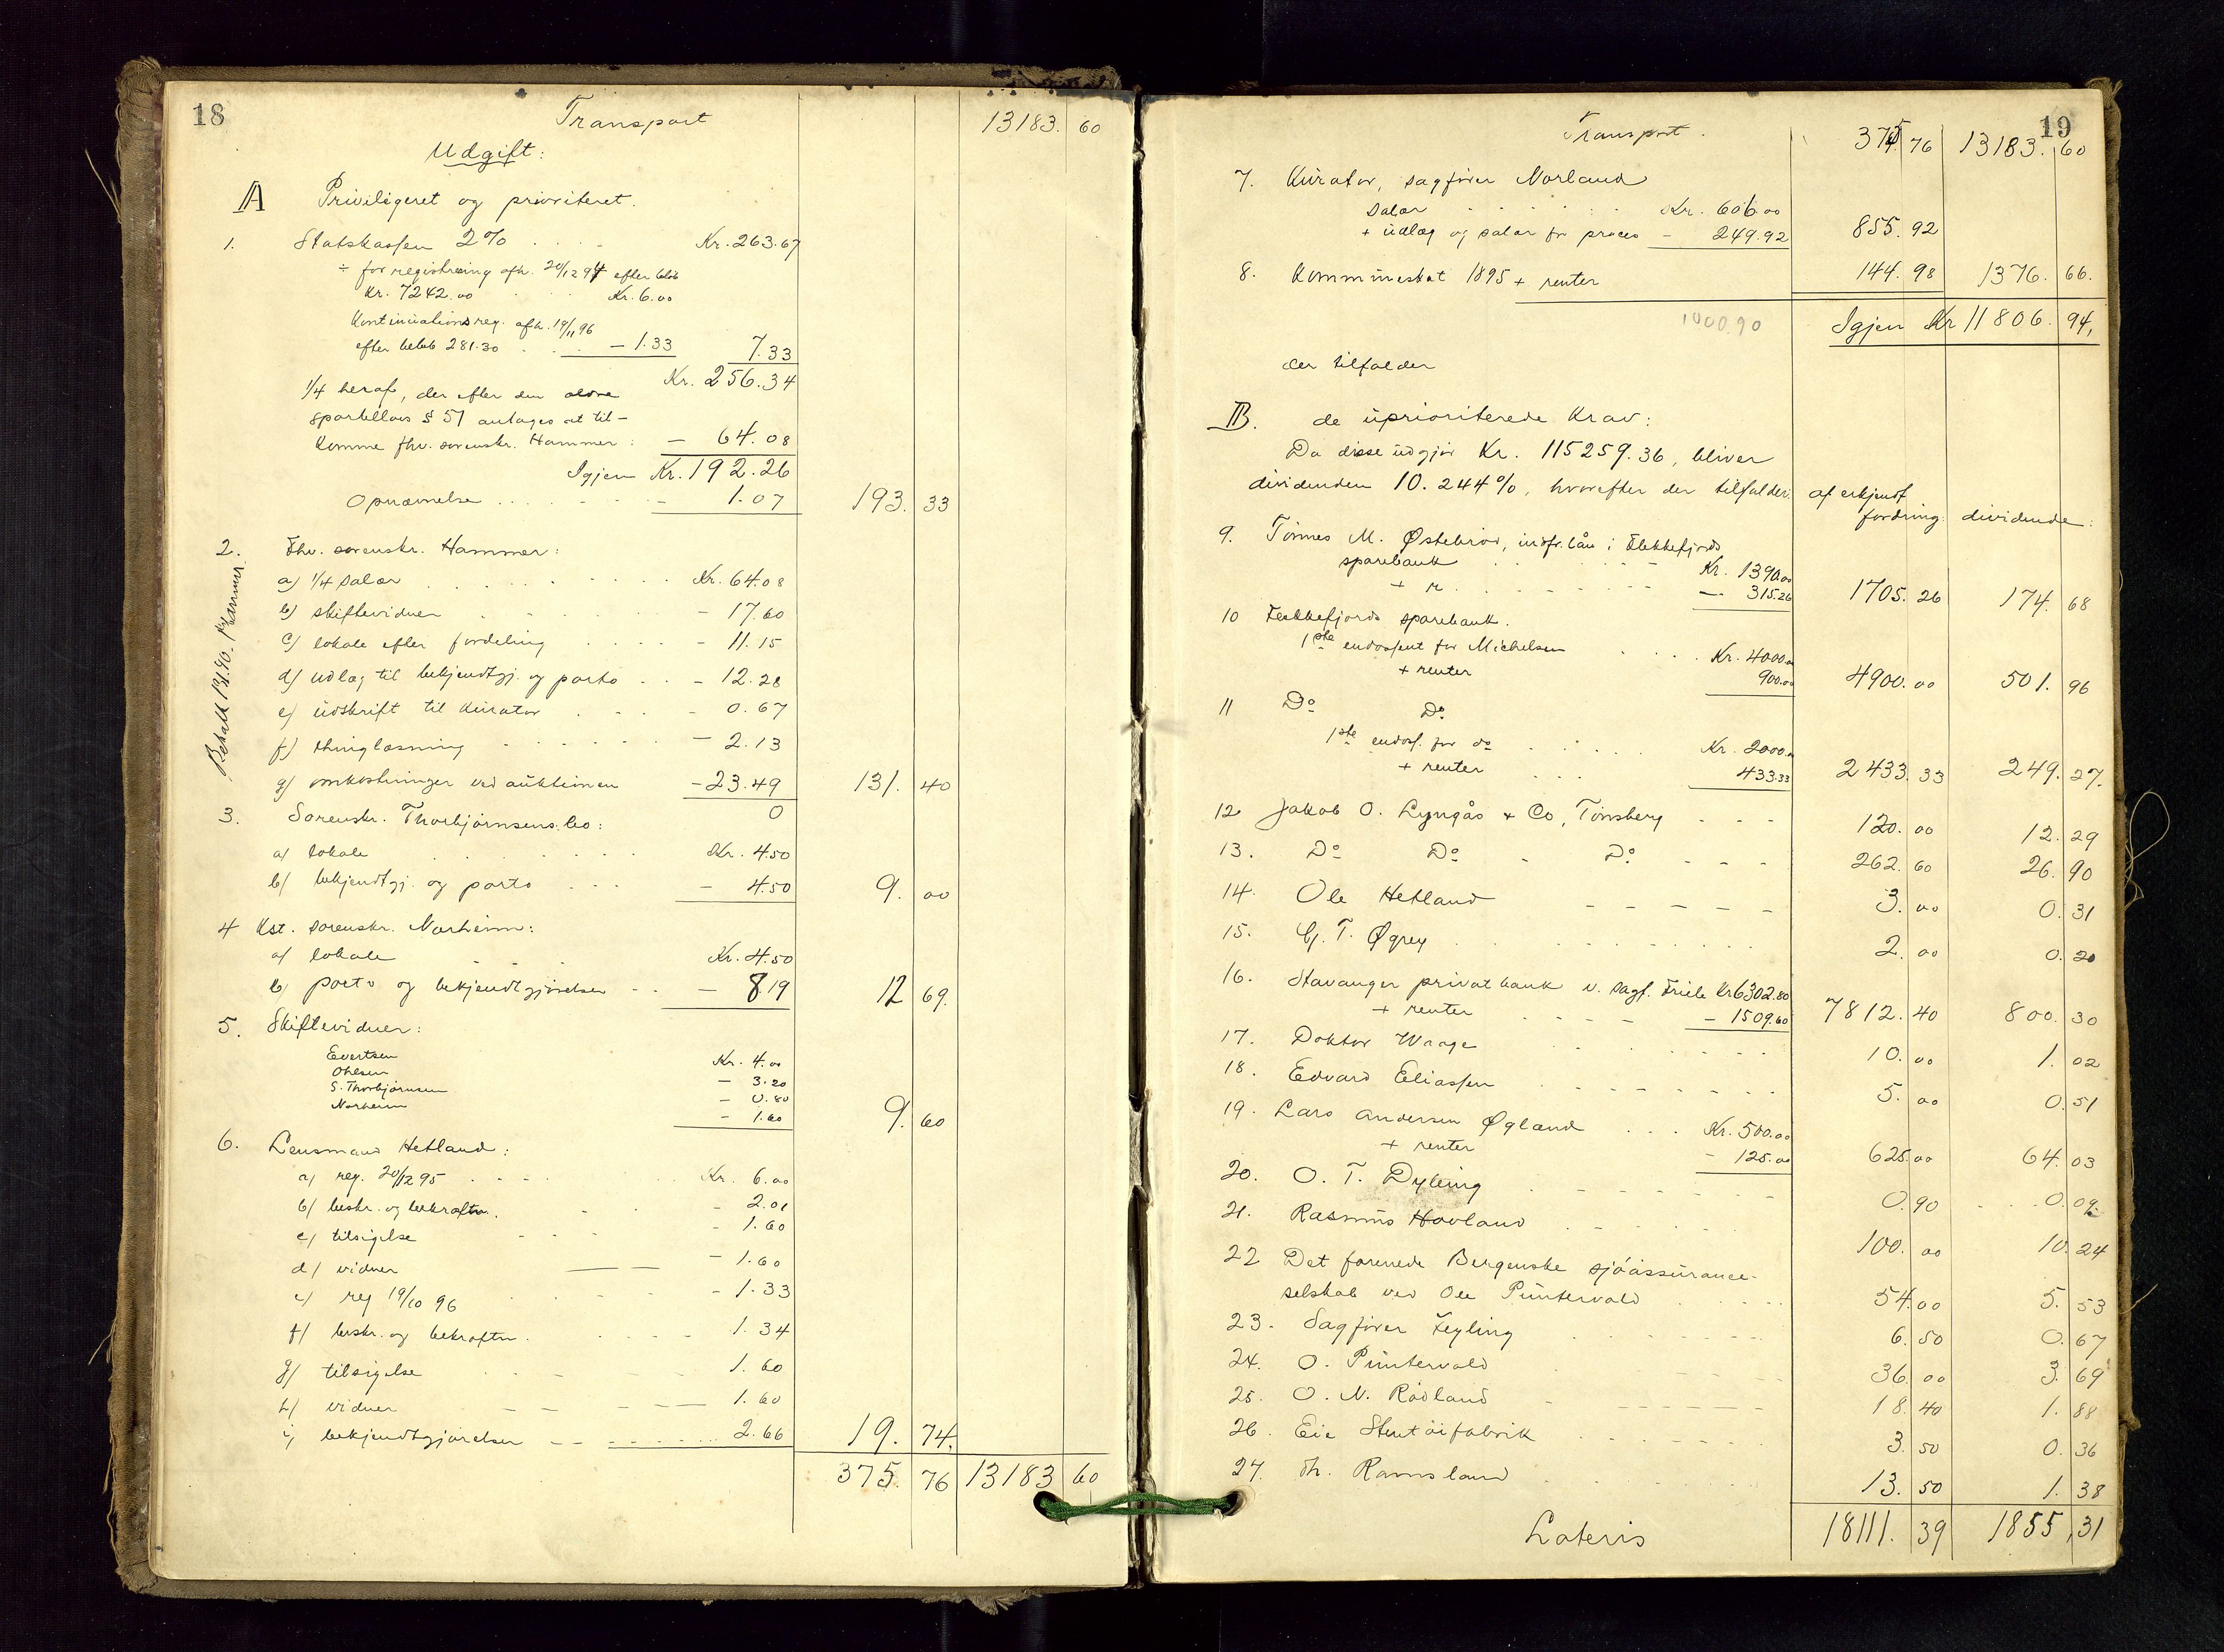 18
Transport 13183. 60
Udgift:
A Priviligeret og prioriteret.
1. Statskassen 2% . . . . Kr. 263.67
÷ for registrering afh. 20/12 94 efter beløb
Kr. 7242.00 . . . Kr. 6.00
Kontinuationsreg. afh. 19/11 96
efter beløb 281.30 . . . — 1.33 7.33
Kr. 256.34
1/4 heraf, der efter den ældre
sportellovs § 51 antages at til-
komme fhv. sorenskr. Hammer: — 64.08
Igjen Kr. 192.26
Opnævnelse . . . . . — 1.07 193. 33
2. Fhv. sorenskr. Hammer:
a) 1/4 salær . . . . . Kr. 64.08
b) skiftevidner . . . . — 17.60
c) lokale efter fordeling . . . . — 11.15
d) udlæg til bekjendtgj. og porto . . — 12.28
e) udskrift til kurator . . . — 0.67
f) thinglæsning . . . . . — 2.13
g) omkostninger ved auktionen — 23.49 131. 40
Betalt 13/1.90. Hammer.
3. Sorenskr. Thorbjørnsens bo: 0
a) lokale . . . . . . Kr. 4.50
b) bekjendtgj. og porto . . . — 4.50 9. 00
4 Kst. sorenskr. Norheim:
a) lokale . . . Kr. 4.50
b) porto og bekjendtgjørelser . . — 8.19 12 69.
5. Skiftevidner:
Evertsen Kr. 4.00
Ohlsen — 3.20
S. Thorbjørnsen — 0.80
Norheim — 1.60 9. 60
6. Lensmand Hetland:
a) reg. 20/12 95 . . . . . Kr. 6.00
b) beskr. og bekræftn. . . — 2.01
c) tilsigelse . . . — 1.60
d) vidner — — — 1.60
e) reg 19/10 96 . . . . — 1.33
f) beskr. og bekræftn. . . . . 1.34
g) tilsigelse . . . . 1.60
h) vidner — — — 1.60
i) bekjendtgjørelser — — . . . 2.66 19. 74.
375. 76 13183 60
19
Transport. 375. 76 13183. 60
7. Kurator, sagfører Norland
Salær . . . . . Kr. 606.00
+ udlæg og salær for proces — 249.92 855. 92
8. Kommuneskat 1895 + renter 144. 98 1376. 66.
1000.90
Igjen Kr 11806. 94,
der tilfalder
B. de uprioriterede Krav:
Da disse udgjør Kr. 115259.36, bliver
dividenden 10.244%, hvorefter der tilfalder: af erkjendt
fordring: dividende:
9. Tønnes M. Østebrød, indfr. lån i Flekkefjords
sparebank . . . . Kr. 1390.00
+ r. . . . . . — 315.26 1705. 26 174. 68
10 Flekkefjords sparebank.
1ste endossent for Michelsen . . . . Kr. 4000.00
+ renter 900.00 4900. 00 501. 96
11 Do Do
1ste endoss. for do . . . . . Kr. 2000.00
+ renter . . . 433.33 2433. 33 249. 27.
12 Jakob O. Lyngås & Co, Tønsberg - - - 120. 00 12. 29
13. Do Do - Do - - - 262. 60 26. 90
14. Ole Hetland - - - - - 3. 00 0. 31
15. G. T. Øgrey . . . . . . . 2. 00 0. 20
16. Stavanger privatbank v. sagf. Friele Kr 6302.80
+ renter - - - - — 1509.60 7812. 40 800. 30
17. Doktor Waage . . . . . 10. 00 1. 02
18. Edvard Eliassen . . . . . . 5. 00 0. 51
19. Lars Andersen Øgland . . . Kr. 500.00
+ renter — 125.00 625. 00 64. 03
20. O. T. Dyling - - - - - - 0. 90 . . . 0. 09.
21. Rasmus Hovland . - - - - 100. 00 10. 24
22 Det forenede Bergenske sjøassurance-
selskab ved Ole Puntervold . . . . . 54. 00 5. 53
23. Sagfører Feyling . . . . . 6. 50 0. 67
24. O. Puntervold . . . 36. 00 3. 69
25. O. N. Rødland - - - - - 18. 40 1. 88
26. Eie Stentøifabrik . . . . . 3. 50 0. 36
27. Th. Ramsland . . . . 13. 50 1. 38
Lateris 18111. 39 1855, 31